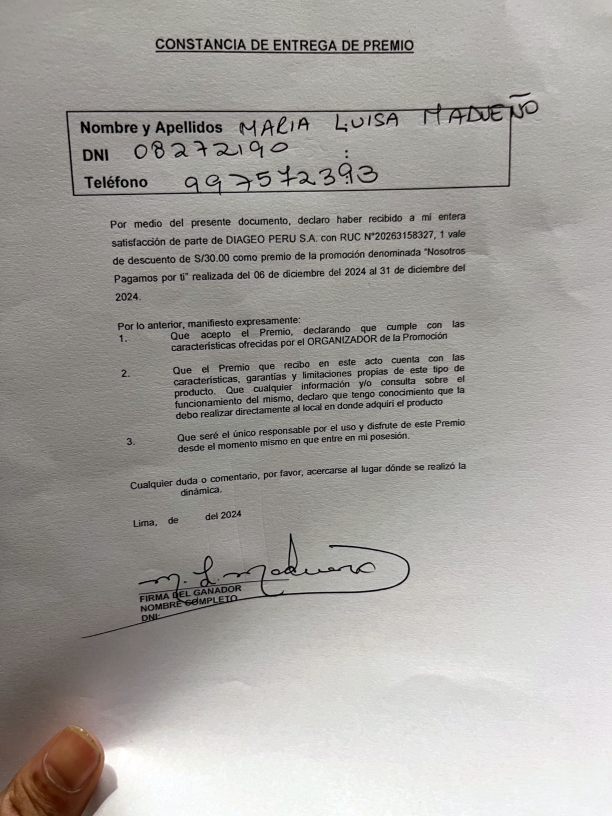 CONSTANCIA DE ENTREGA DE PREMIO
Nombre y Apellidos MARIA LUISA MADUEÑO
DNI 08272190
Teléfono 997572393
Por medio del presente documento, declaro haber recibido a mi entera
satisfacción de parte de DIAGEO PERU S.A. con RUC N°20263158327, 1 vale
de descuento de S/30.00 como premio de la promoción denominada "Nosotros
Pagamos por ti" realizada del 06 de diciembre del 2024 al 31 de diciembre del
2024.
Por lo anterior, manifiesto expresamente:
1. Que acepto el Premio, declarando que cumple con las
características ofrecidas por el ORGANIZADOR de la Promoción
2. Que el Premio que recibo en este acto cuenta con las
características, garantías y limitaciones propias de este tipo de
producto. Que cualquier información y/o consulta sobre el
funcionamiento del mismo, declaro que tengo conocimiento que la
debo realizar directamente al local en donde adquirí el producto
3. Que seré el único responsable por el uso y disfrute de este Premio
desde el momento mismo en que entre en mi posesión.
Cualquier duda o comentario, por favor, acercarse al lugar dónde se realizó la
dinámica.
Lima, de del 2024
M. L. Madueño
FIRMA DEL GANADOR
NOMBRE COMPLETO
DNI: